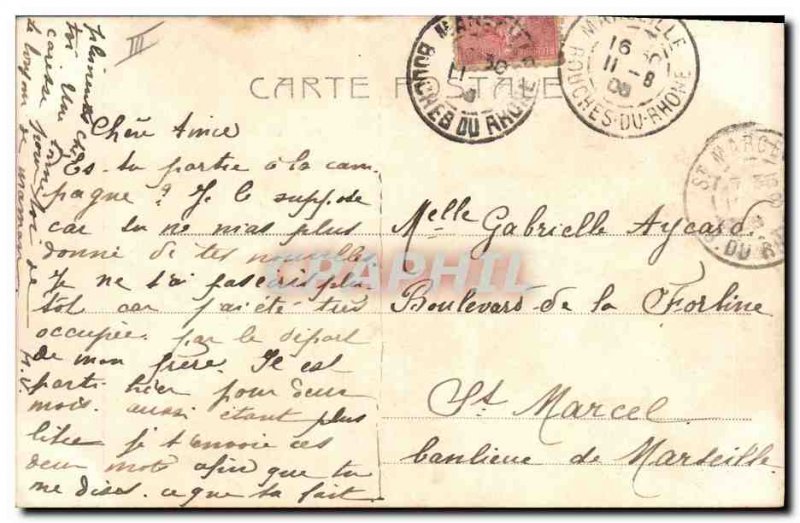 CARTE POSTALE
Chère Amie
Es-tu partie à la cam-
pagne? Je le suppose
car tu ne m'as plus
donné de tes nouvelles
Je ne t'ai pas écris plu
tôt car j'ai été très
occupée. par le départ
de mon frère. Il est
parti hier pour deux
mois. aussi étant plus
libre je t'envoie ces
deux mots afin que tu
me dises. ce que tu fait
III
caresse pour
de maman
Melle Gabrielle Aycard
Boulevard de la Forbine
St Marcel
banlieue de Marseille
MARSEILLE
16
11-8
08
BOUCHES-DU-RHONE
MARSEILLE
BOUCHES DU RHONE
ST MARCEL
B. DU RH
CRAPHIL